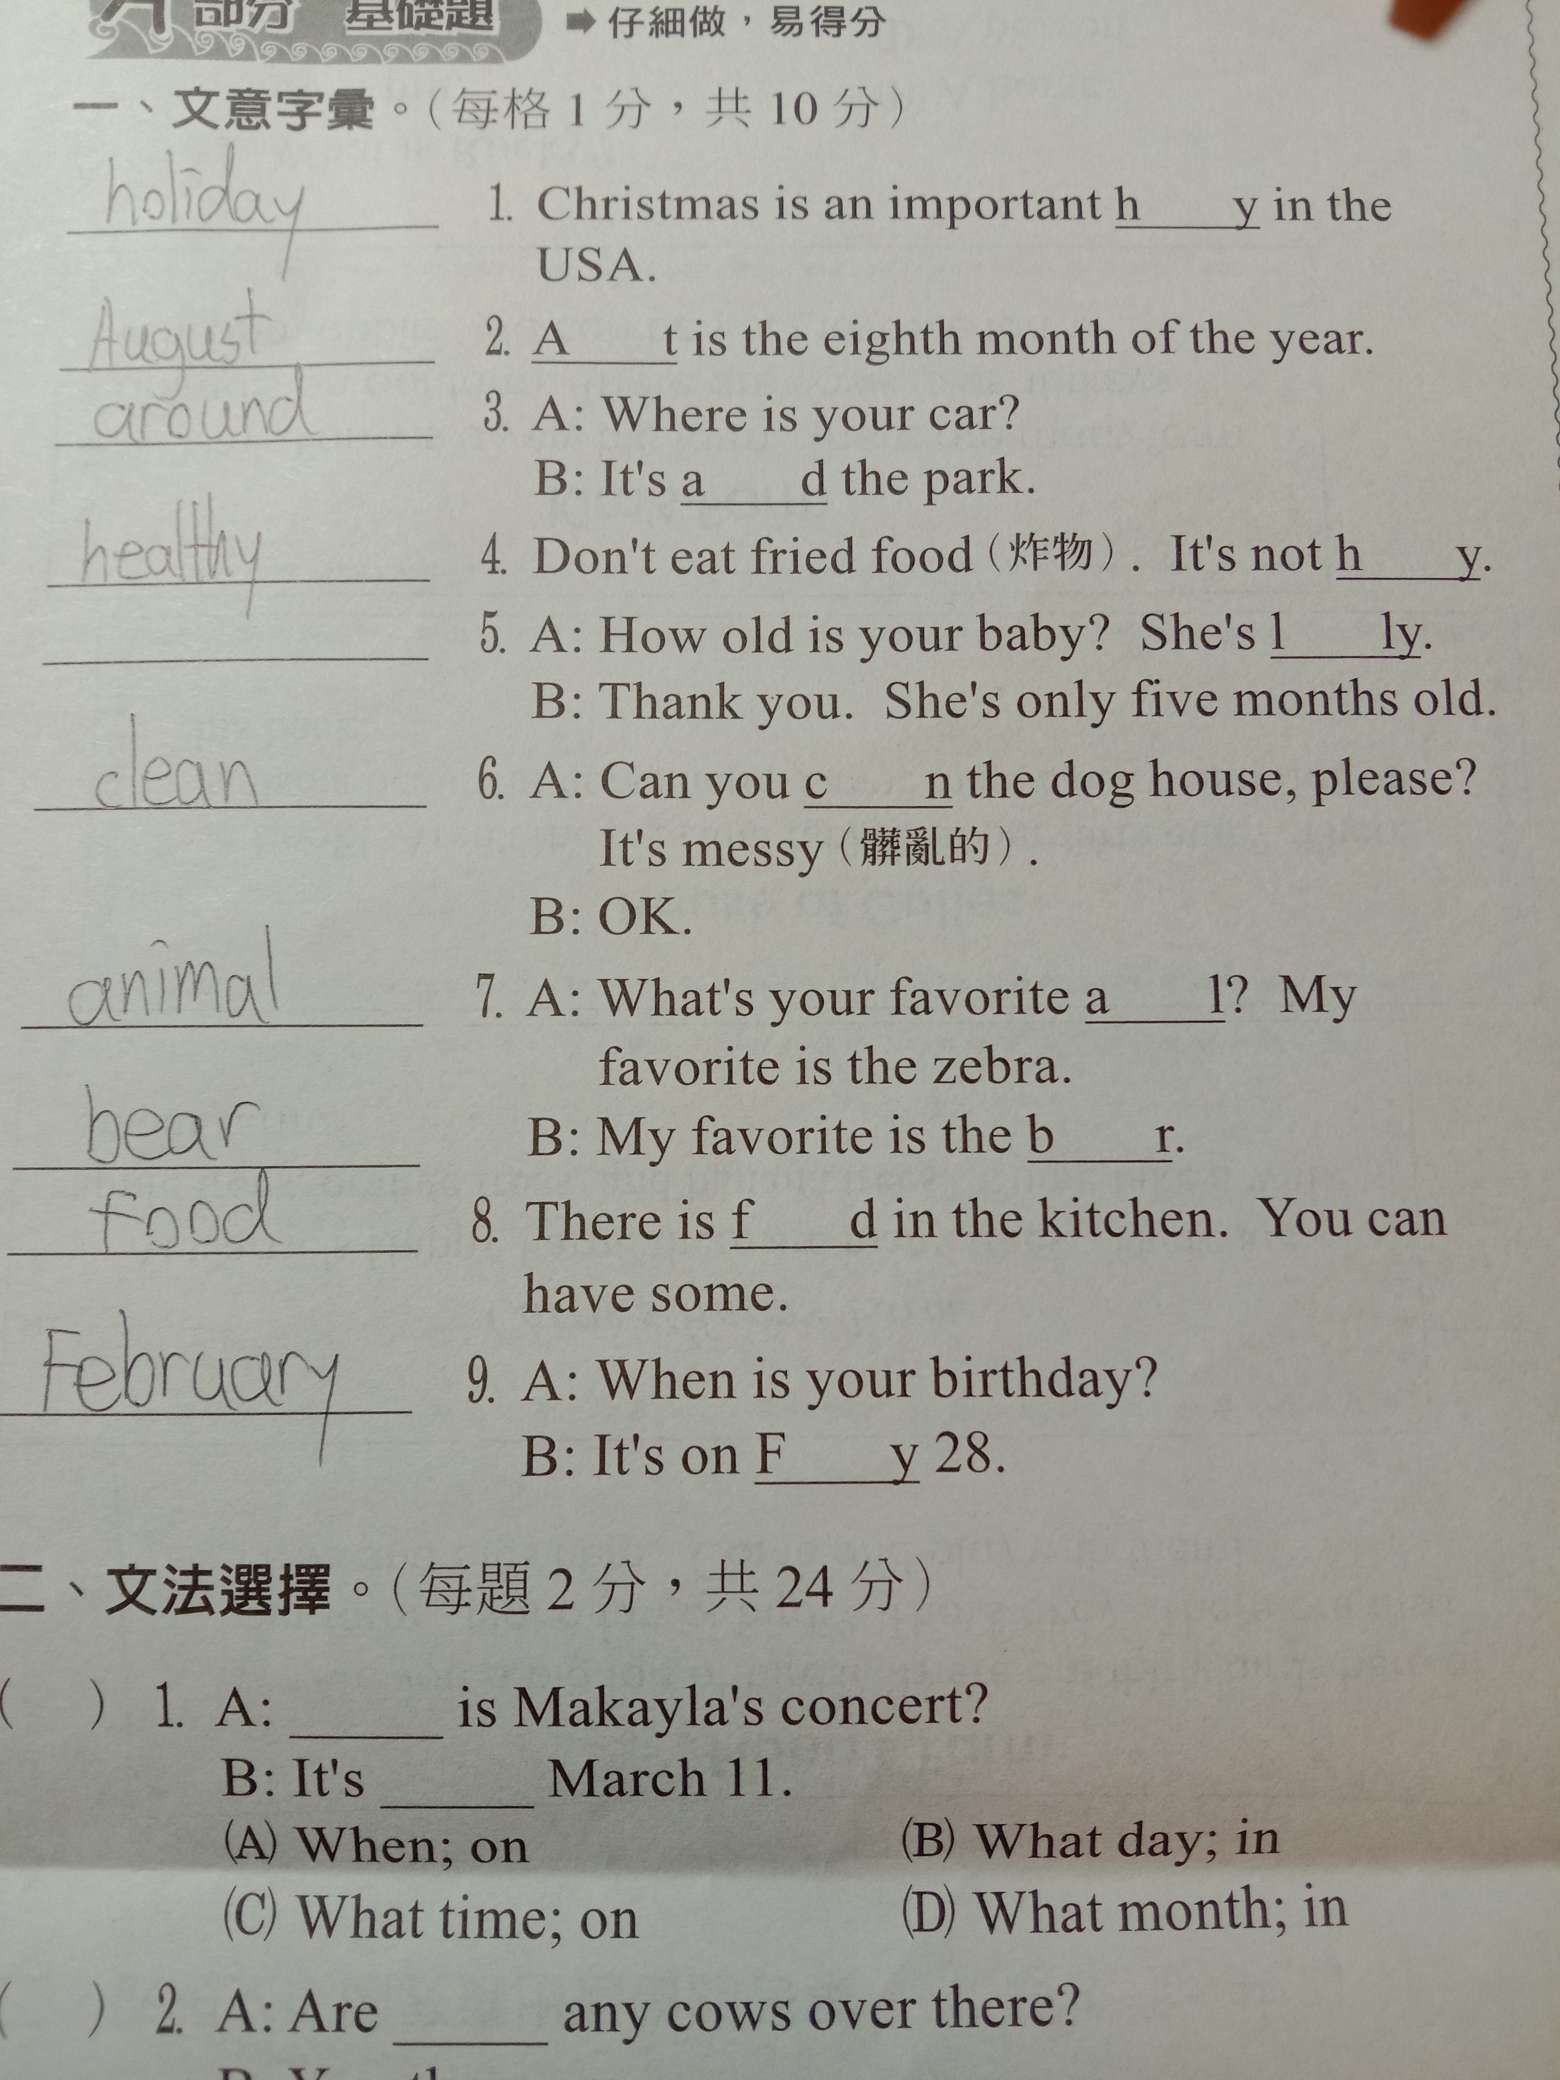 部分 基礎題 ➡ 仔細做,易得分
一、文意字彙。(每格 1 分,共 10 分)
holiday 1. Christmas is an important h____y in the
USA.
August 2. A____t is the eighth month of the year.
around 3. A: Where is your car?
B: It's a____d the park.
healthy 4. Don't eat fried food (炸物). It's not h____y.
5. A: How old is your baby? She's l____ly.
B: Thank you. She's only five months old.
clean 6. A: Can you c____n the dog house, please?
It's messy (髒亂的).
B: OK.
animal 7. A: What's your favorite a____l? My
favorite is the zebra.
bear B: My favorite is the b____r.
food 8. There is f____d in the kitchen. You can
have some.
February 9. A: When is your birthday?
B: It's on F____y 28.
二、文法選擇。(每題 2 分,共 24 分)
( ) 1. A: ______ is Makayla's concert?
B: It's ______ March 11.
(A) When; on (B) What day; in
(C) What time; on (D) What month; in
( ) 2. A: Are ______ any cows over there?